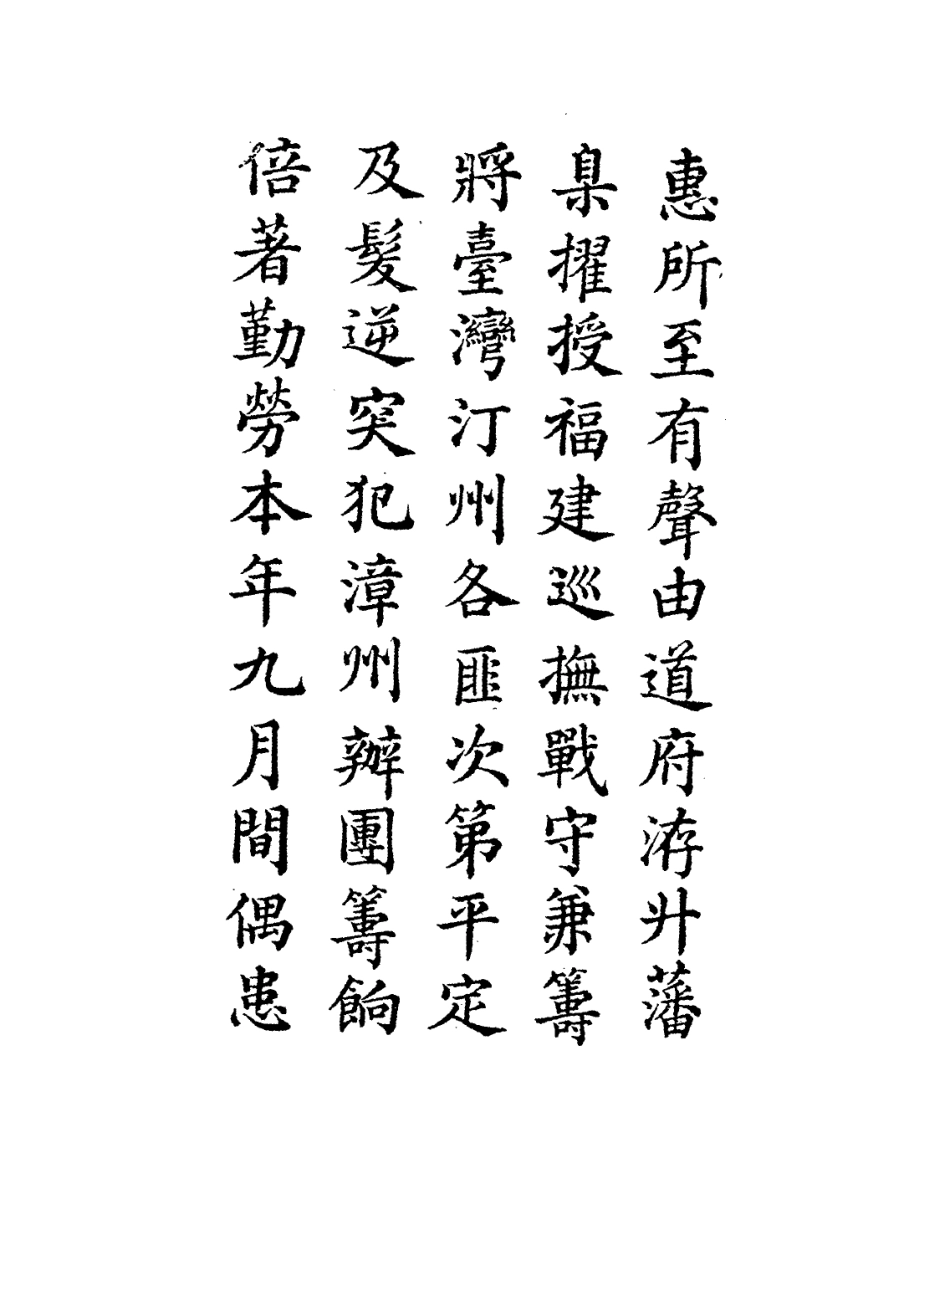 惠所至有聲由道府洊升藩
臬擢授福建巡撫戰守兼籌
將臺灣汀州各匪次第平定
及髮逆突犯漳州辦團籌餉
倍著勤勞本年九月間偶患